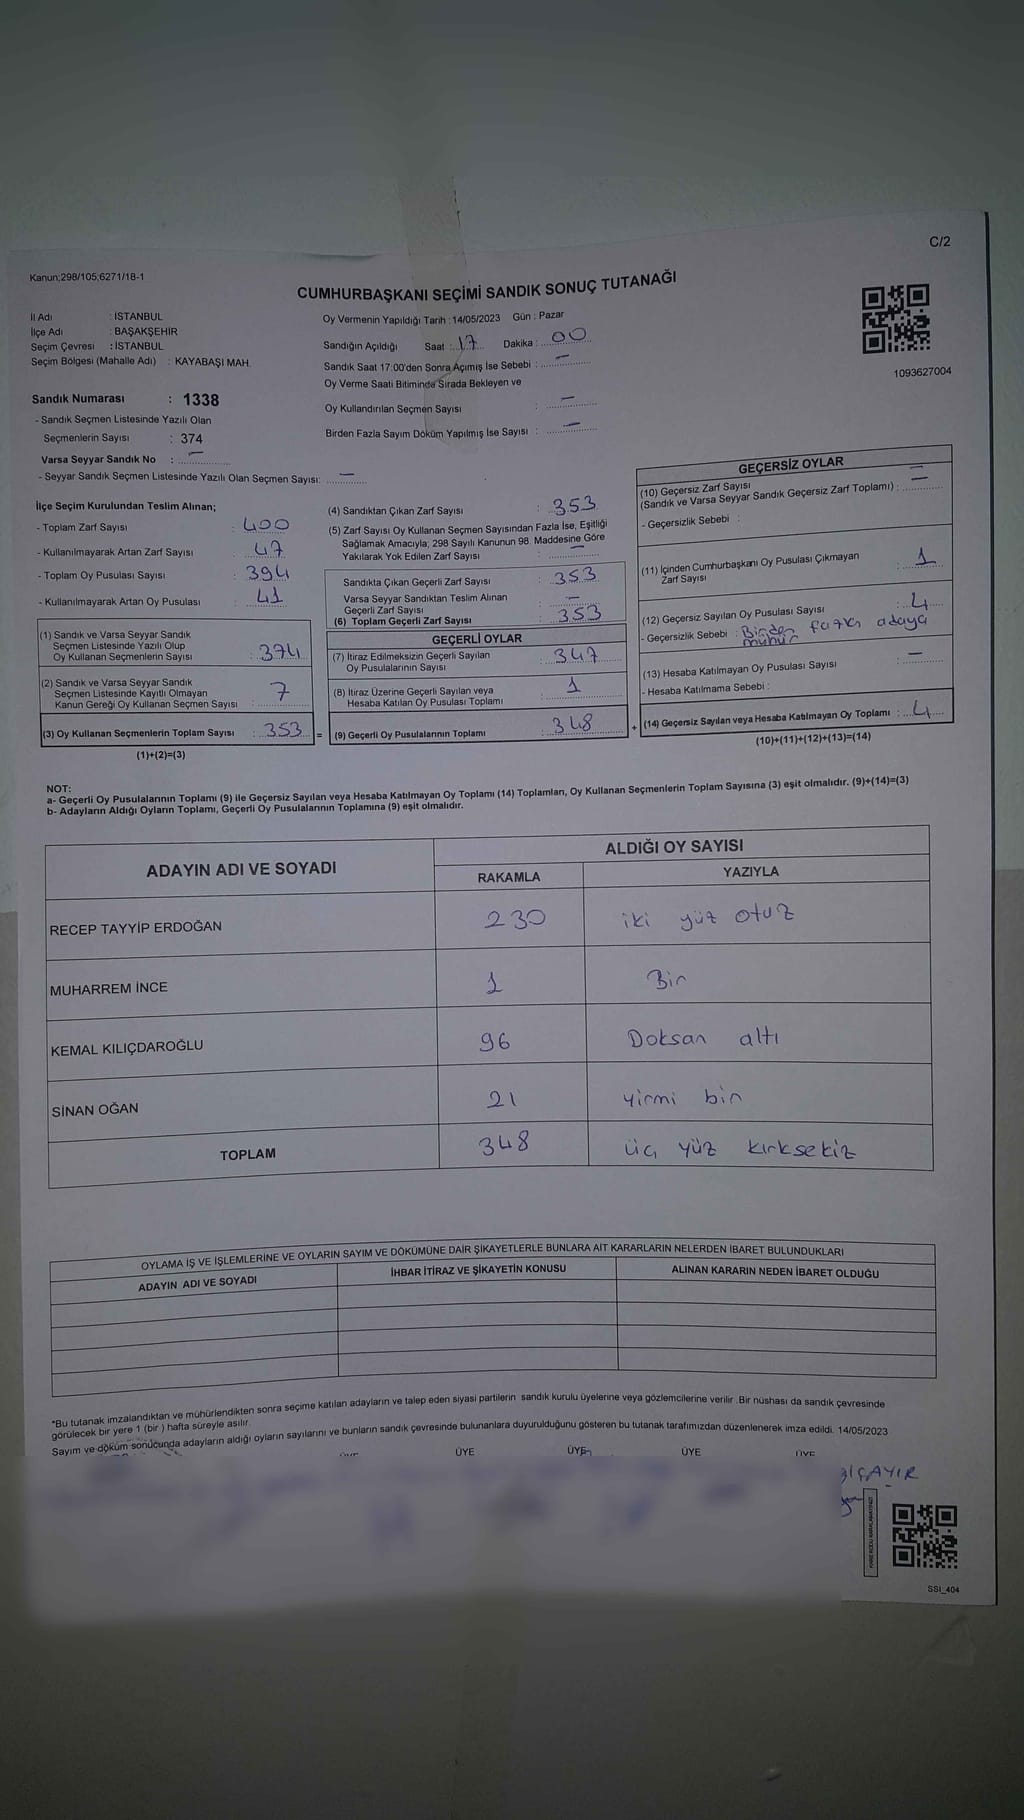 C/2
Kanun;298/105;6271/18-1
CUMHURBAŞKANI SEÇİMİ SANDIK SONUÇ TUTANAĞI
İl Adı : İSTANBUL
İlçe Adı : BAŞAKŞEHİR
Seçim Çevresi : İSTANBUL
Seçim Bölgesi (Mahalle Adı) : KAYABAŞI MAH.
Oy Vermenin Yapıldığı Tarih : 14/05/2023 Gün : Pazar
Sandığın Açıldığı Saat : 17 Dakika : 00
Sandık Saat 17:00'den Sonra Açımış İse Sebebi : —
Oy Verme Saati Bitiminde Sırada Bekleyen ve
Oy Kullandırılan Seçmen Sayısı : —
Birden Fazla Sayım Döküm Yapılmış İse Sayısı : —
1093627004
Sandık Numarası : 1338
- Sandık Seçmen Listesinde Yazılı Olan
Seçmenlerin Sayısı : 374
Varsa Seyyar Sandık No : —
- Seyyar Sandık Seçmen Listesinde Yazılı Olan Seçmen Sayısı: —
İlçe Seçim Kurulundan Teslim Alınan;
- Toplam Zarf Sayısı : 400
- Kullanılmayarak Artan Zarf Sayısı : 47
- Toplam Oy Pusulası Sayısı : 394
- Kullanılmayarak Artan Oy Pusulası : 41
(1) Sandık ve Varsa Seyyar Sandık
Seçmen Listesinde Yazılı Olup
Oy Kullanan Seçmenlerin Sayısı : 374
(2) Sandık ve Varsa Seyyar Sandık
Seçmen Listesinde Kayıtlı Olmayan
Kanun Gereği Oy Kullanan Seçmen Sayısı : 7
(3) Oy Kullanan Seçmenlerin Toplam Sayısı : 353 =
(1)+(2)=(3)
(4) Sandıktan Çıkan Zarf Sayısı : 353
(5) Zarf Sayısı Oy Kullanan Seçmen Sayısından Fazla İse, Eşitliği
Sağlamak Amacıyla; 298 Sayılı Kanunun 98. Maddesine Göre
Yakılarak Yok Edilen Zarf Sayısı : —
Sandıkta Çıkan Geçerli Zarf Sayısı : 353
Varsa Seyyar Sandıktan Teslim Alınan
Geçerli Zarf Sayısı : —
(6) Toplam Geçerli Zarf Sayısı : 353
GEÇERLİ OYLAR
(7) İtiraz Edilmeksizin Geçerli Sayılan
Oy Pusulalarının Sayısı : 347
(8) İtiraz Üzerine Geçerli Sayılan veya
Hesaba Katılan Oy Pusulası Toplamı : 1
(9) Geçerli Oy Pusulalarının Toplamı : 348 +
GEÇERSİZ OYLAR
(10) Geçersiz Zarf Sayısı
(Sandık ve Varsa Seyyar Sandık Geçersiz Zarf Toplamı) : —
- Geçersizlik Sebebi :
(11) İçinden Cumhurbaşkanı Oy Pusulası Çıkmayan
Zarf Sayısı : 1
(12) Geçersiz Sayılan Oy Pusulası Sayısı : 4
- Geçersizlik Sebebi : Birden fazla adaya
mühür
(13) Hesaba Katılmayan Oy Pusulası Sayısı : —
- Hesaba Katılmama Sebebi :
(14) Geçersiz Sayılan veya Hesaba Katılmayan Oy Toplamı : 4
(10)+(11)+(12)+(13)=(14)
NOT:
a- Geçerli Oy Pusulalarının Toplamı (9) ile Geçersiz Sayılan veya Hesaba Katılmayan Oy Toplamı (14) Toplamları, Oy Kullanan Seçmenlerin Toplam Sayısına (3) eşit olmalıdır. (9)+(14)=(3)
b- Adayların Aldığı Oyların Toplamı, Geçerli Oy Pusulalarının Toplamına (9) eşit olmalıdır.
ADAYIN ADI VE SOYADI
ALDIĞI OY SAYISI
RAKAMLA YAZIYLA
RECEP TAYYİP ERDOĞAN 230 iki yüz otuz
MUHARREM İNCE 1 Bir
KEMAL KILIÇDAROĞLU 96 Doksan altı
SİNAN OĞAN 21 yirmi bin
TOPLAM 348 üç yüz kırksekiz
OYLAMA İŞ VE İŞLEMLERİNE VE OYLARIN SAYIM VE DÖKÜMÜNE DAİR ŞİKAYETLERLE BUNLARA AİT KARARLARIN NELERDEN İBARET BULUNDUKLARI
ADAYIN ADI VE SOYADI İHBAR İTİRAZ VE ŞİKAYETİN KONUSU ALINAN KARARIN NEDEN İBARET OLDUĞU
*Bu tutanak imzalandıktan ve mühürlendikten sonra seçime katılan adayların ve talep eden siyasi partilerin sandık kurulu üyelerine veya gözlemcilerine verilir. Bir nüshası da sandık çevresinde
görülecek bir yere 1 (bir ) hafta süreyle asılır.
Sayım ve döküm sonucunda adayların aldığı oyların sayılarını ve bunların sandık çevresinde bulunanlara duyurulduğunu gösteren bu tutanak tarafımızdan düzenlenerek imza edildi. 14/05/2023
ÜYE ÜYE ÜYE ÜYE ÜYE
SSİ_404